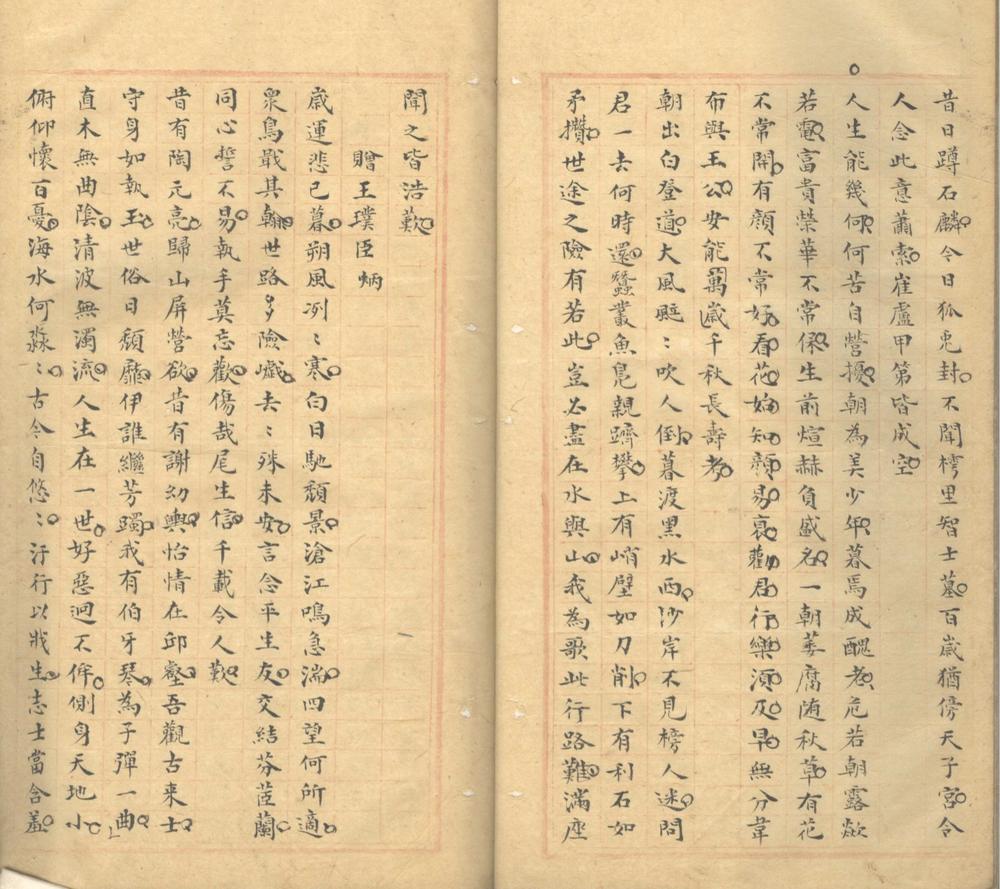 昔日蹲石麟今日狐兎封不聞樗里智士墓百歲猶傍天子宮令
人念此意蕭索崔盧甲第皆成空
人生能幾何何苦自營擾朝為美少年暮焉成醜老危若朝露歘
若電富貴榮華不常保生前煊赫負盛名一朝萎腐隨秋草有花
不常開有顏不常好看花始知顏易衰勸君行樂須及早無分韋
布與王公安能萬歲千秋長壽考
朝出白登道大風颬〻吹人倒暮渡黑水西沙岸不見榜人迷問
君一去何時還蠶叢魚鳧親躋攀上有峭壁如刀削下有利石如
矛攢世途之險有若此豈必盡在水與山我為歌此行路難滿座
聞之皆浩歎
贈王璞臣炳
歲運悲已暮朔風冽〻寒白日馳頹景滄江鳴急湍四望何所適
眾鳥戢其翰世路多險巇去〻殊未安言念平生友交結芬茝蘭
同心誓不易執手莫忘歡傷哉尾生信千載令人歎
昔有陶元亮歸山屏營欲昔有謝幼輿怡情在邱壑吾觀古来士
守身如執玉世俗日頹靡伊誰繼芳躅我有伯牙琴為子彈一曲
直木無曲陰清波無濁流人生在一世好惡迥不侔側身天地小
俯仰懷百憂海水何淼〻古今自悠〻汙行以戕生志士當含羞